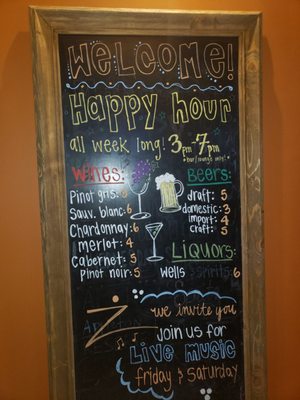 WELCOME!
Happy hour
all week long! 3pm-7pm
*bar/lounge only!*
Wines:
Pinot gris: 6
Sauv. blanc: 6
Chardonnay: 6
merlot: 4
Cabernet: 5
Pinot noir: 5
Beers:
draft: 5
domestic: 3
import: 4
craft: 5
Liquors:
Wells & spirits: 6
we invite you
Join us for
Live music
friday & Saturday